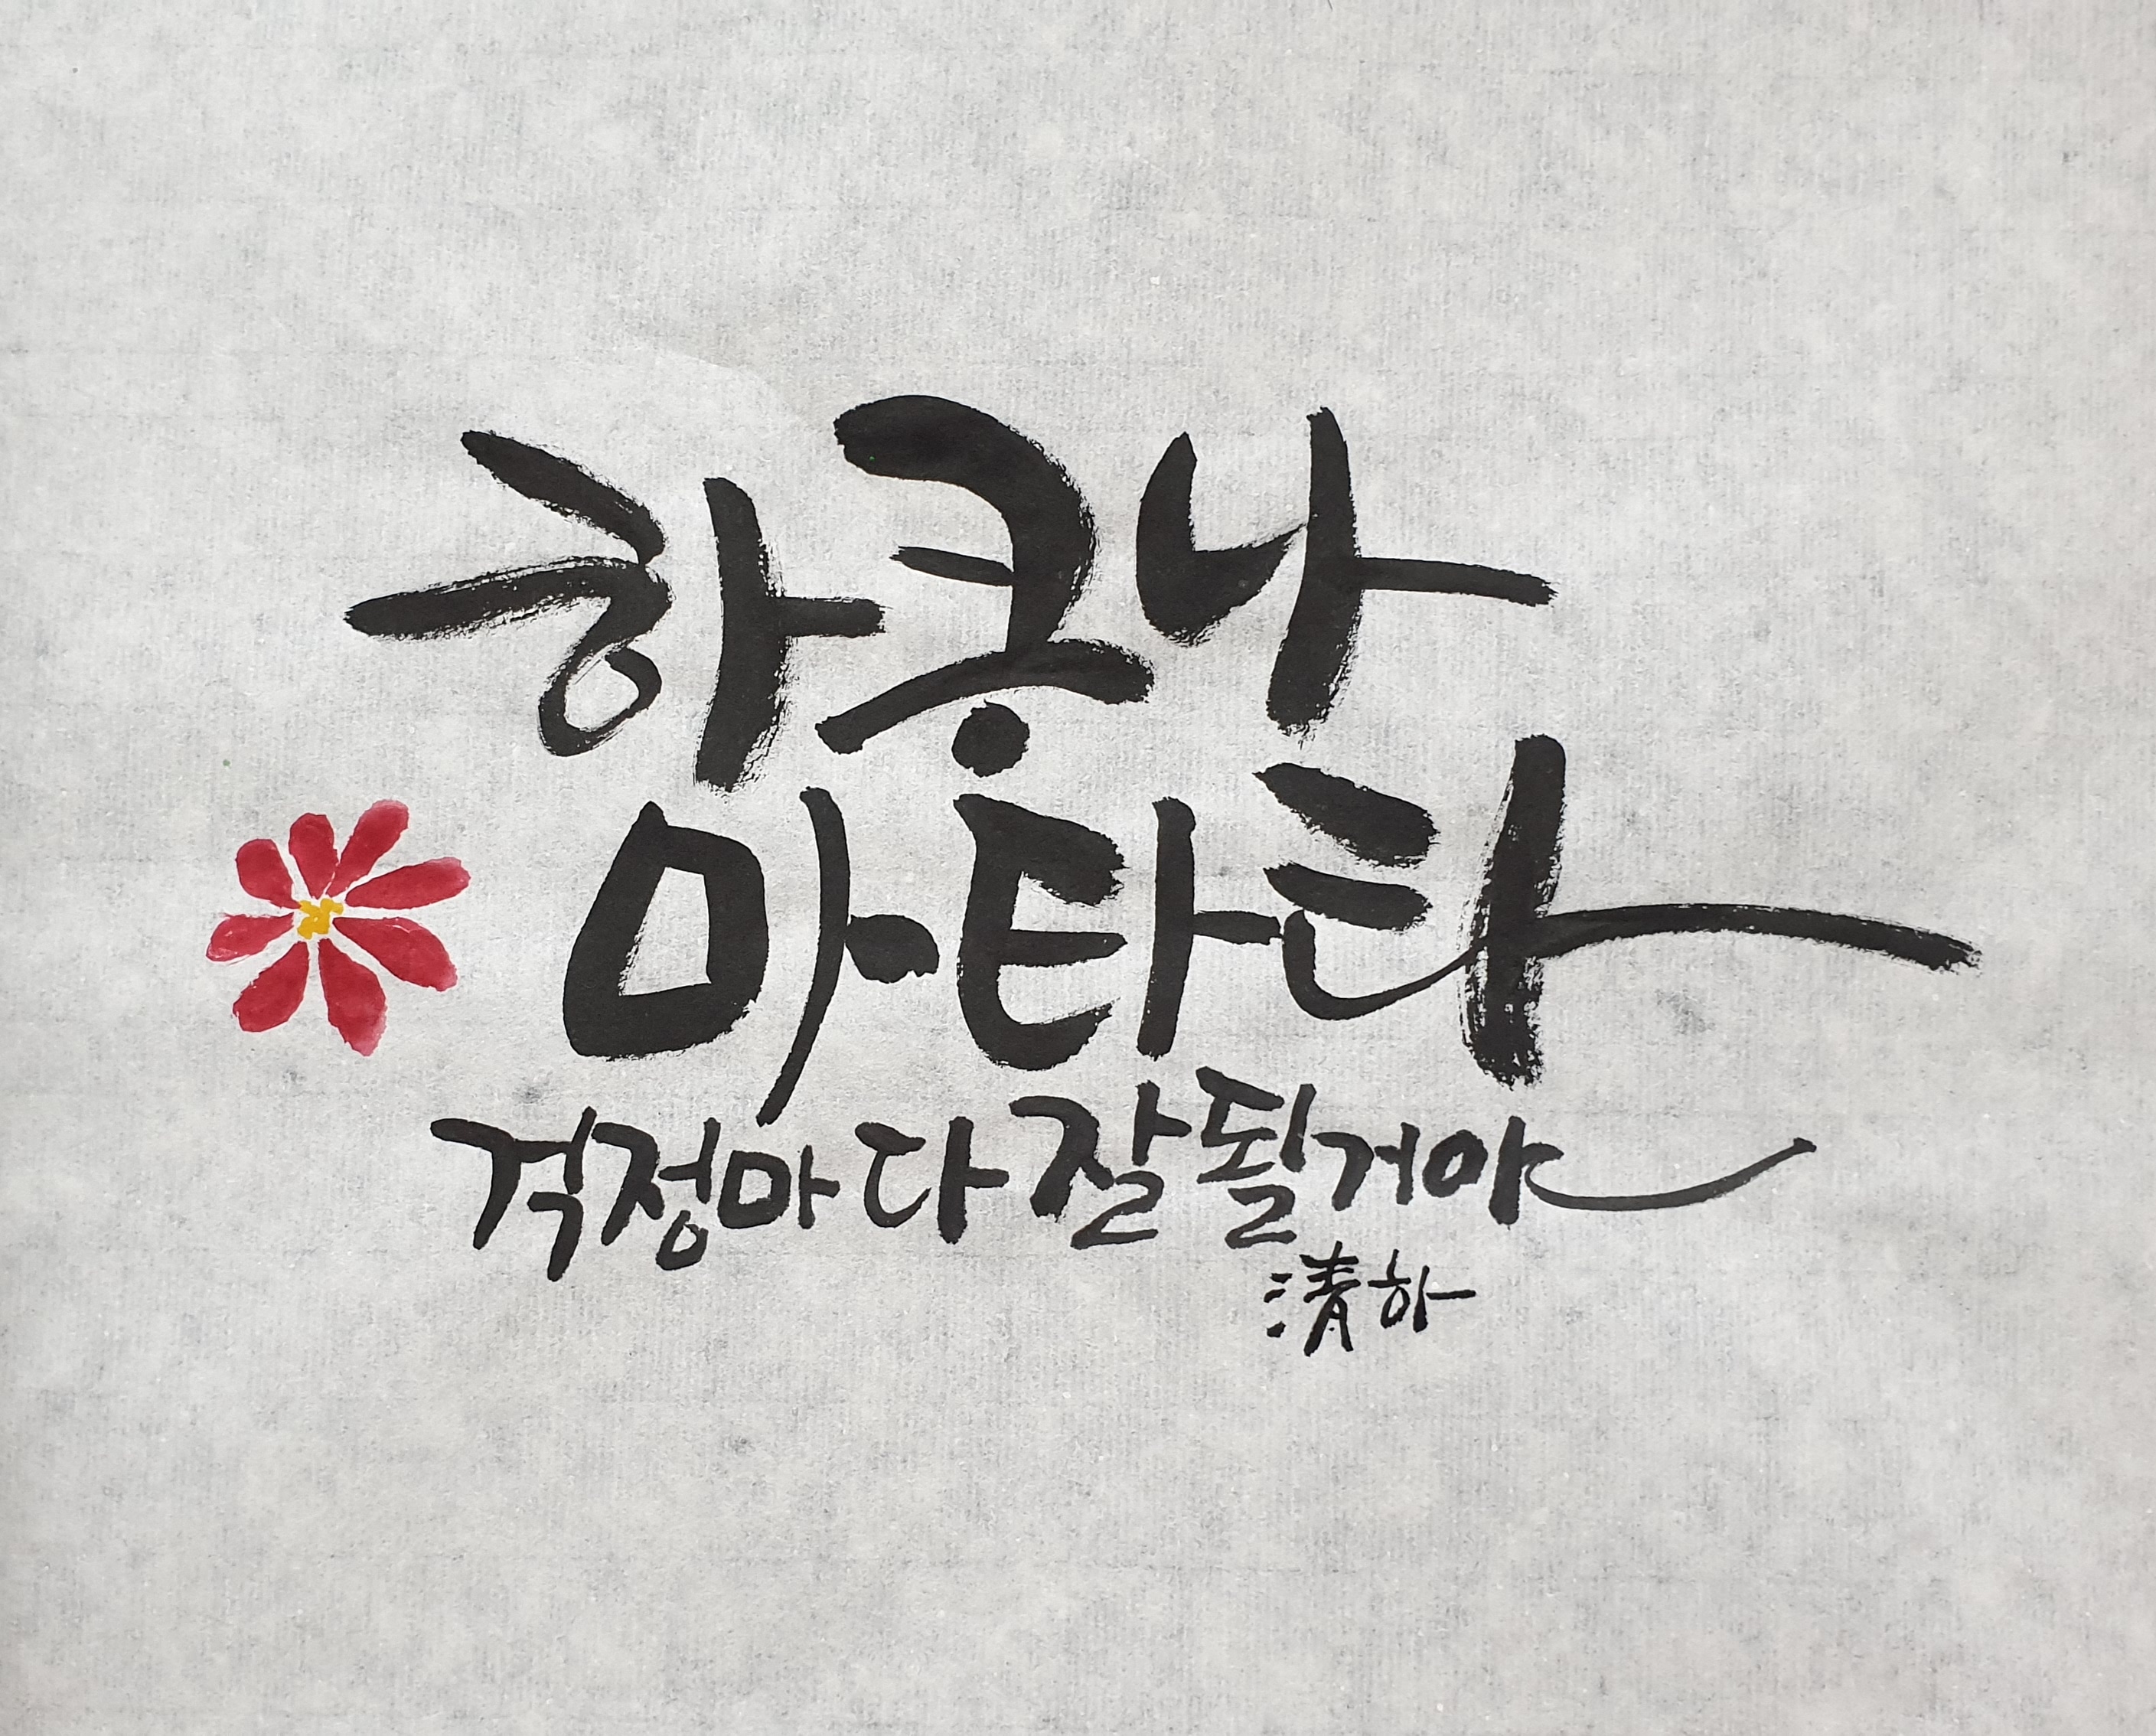 하쿠나
마타타
걱정마 다 잘 될거야
淸하